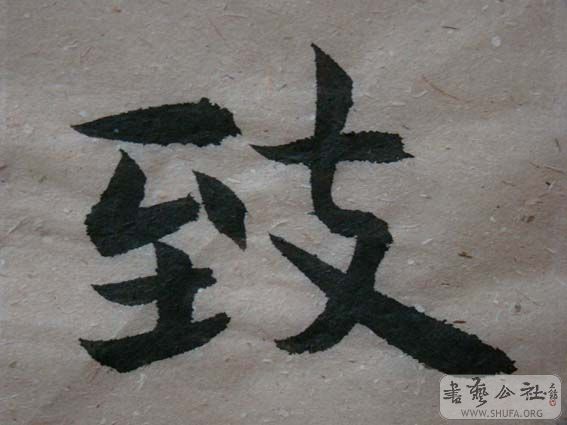 致
書藝公社
WWW.SHUFA.ORG